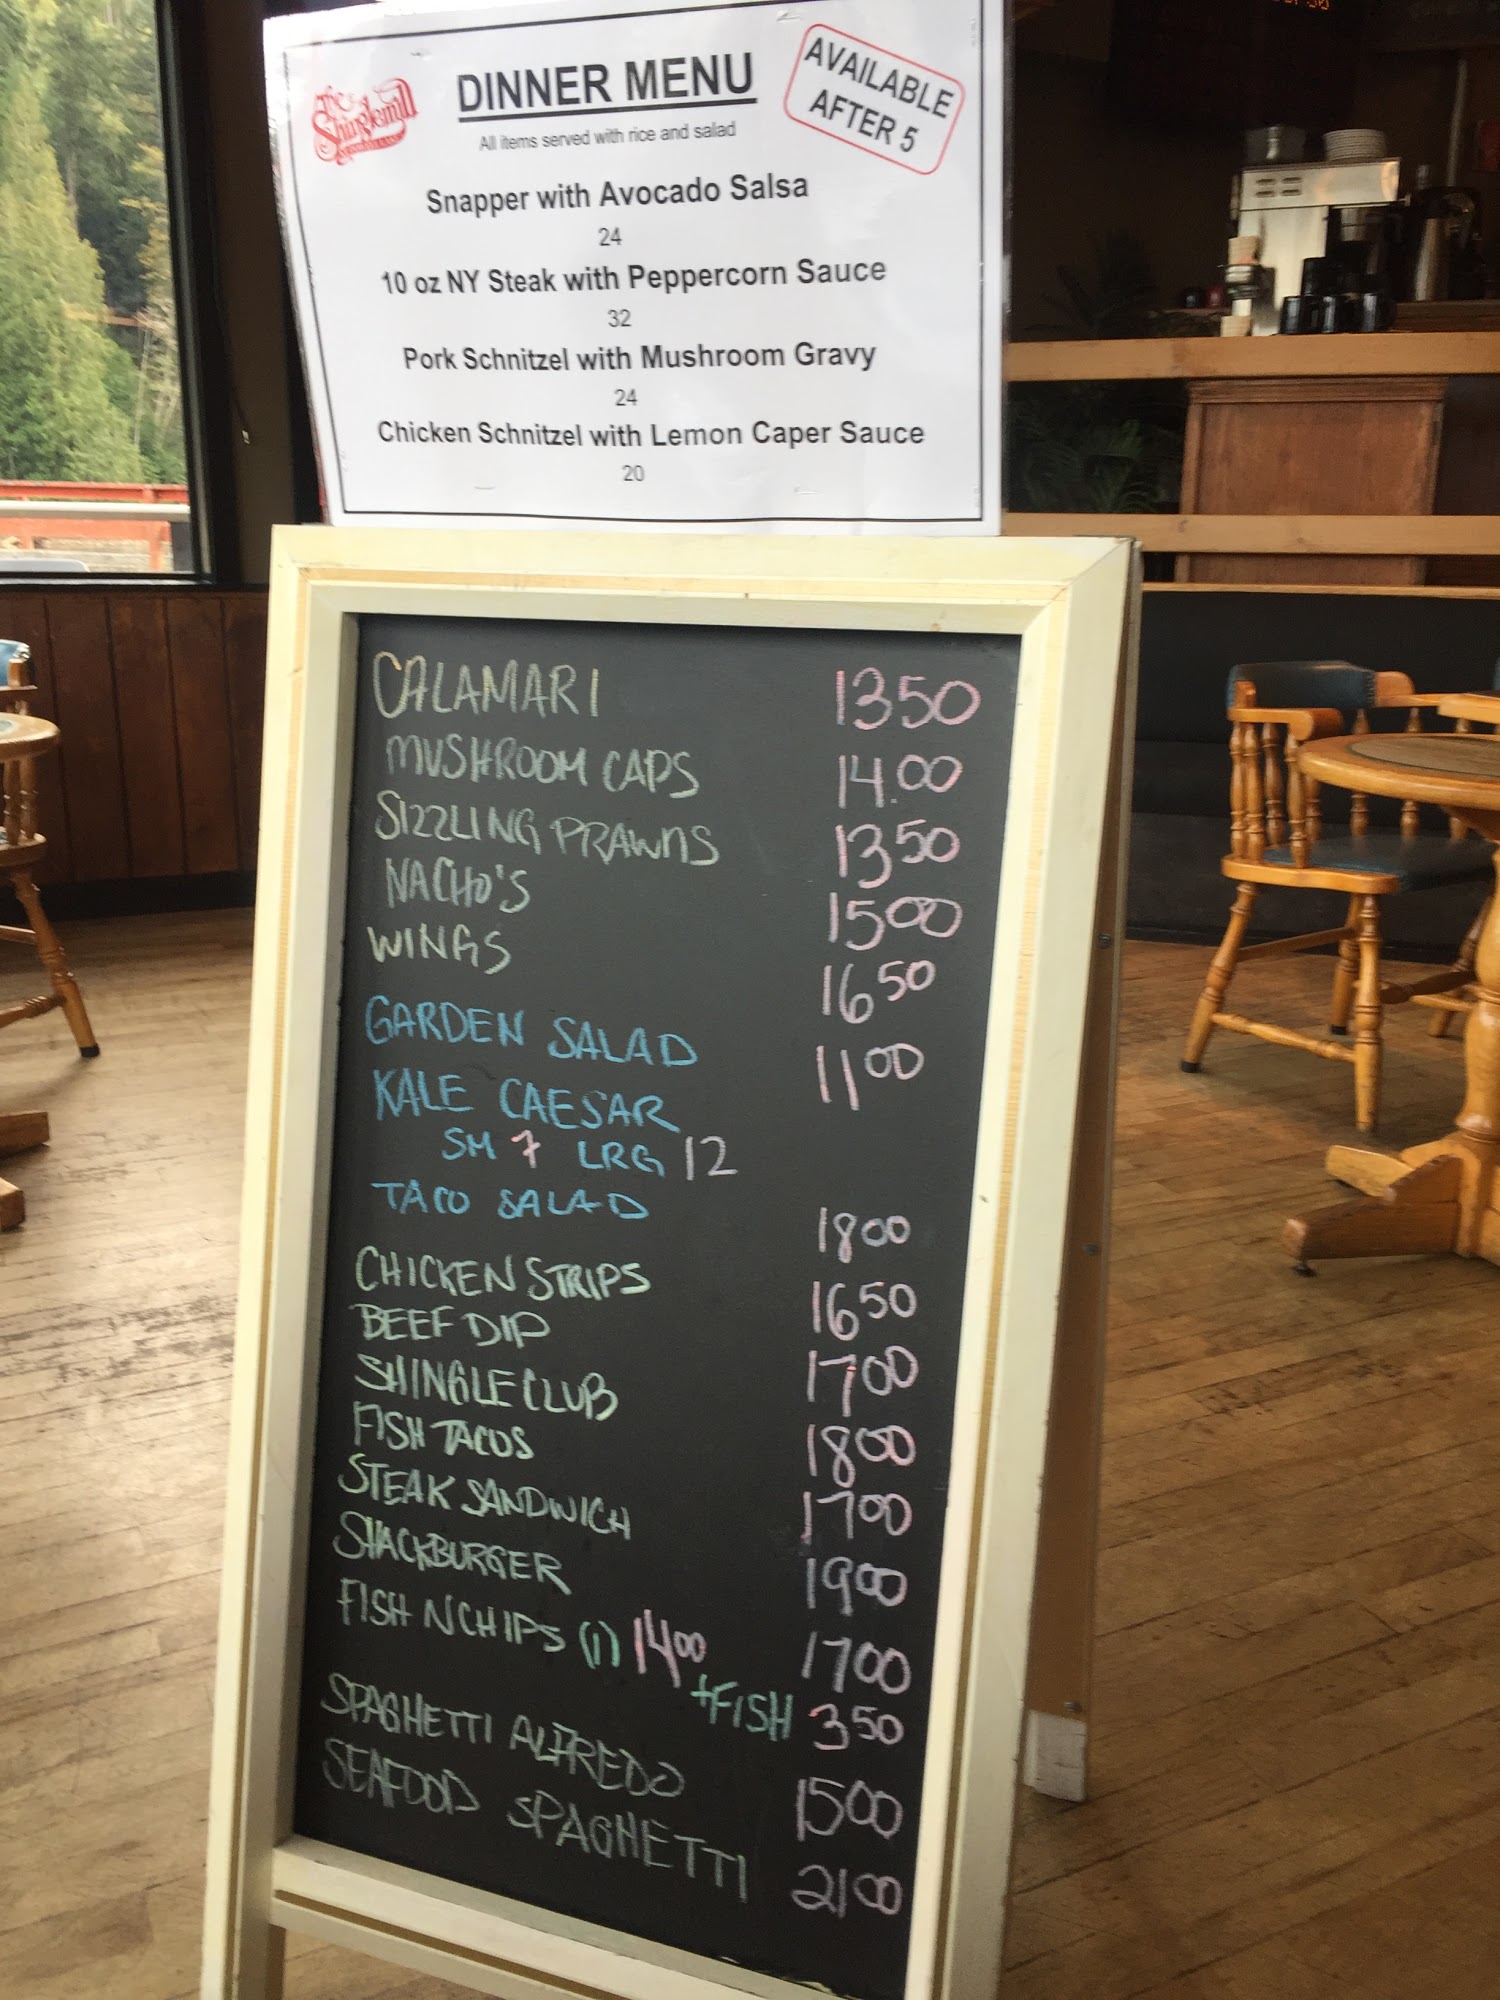 the Shinglemill
DINNER MENU
AVAILABLE
AFTER 5
All items served with rice and salad
Snapper with Avocado Salsa
24
10 oz NY Steak with Peppercorn Sauce
32
Pork Schnitzel with Mushroom Gravy
24
Chicken Schnitzel with Lemon Caper Sauce
20
CALAMARI 1350
MUSHROOM CAPS 14.00
SIZZLING PRAWNS 1350
NACHO'S 1500
WINGS 1650
GARDEN SALAD 1100
KALE CAESAR
SM 7 LRG 12
TACO SALAD 1800
CHICKEN STRIPS 1650
BEEF DIP 1700
SHINGLE CLUB 1800
FISH TACOS 1700
STEAK SANDWICH 1900
SHACKBURGER 1700
FISH N CHIPS (1) 1400
+FISH 350
SPAGHETTI ALFREDO 1500
SEAFOOD SPAGHETTI 2100